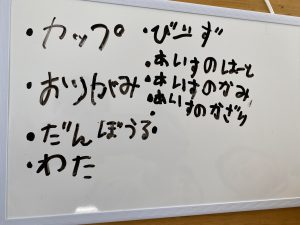 ・カップ
・おりがみ
・だんぼうる
・わた
・びーず
・あいすのしーと
・あいすのかみ
・あいすのかざり
・